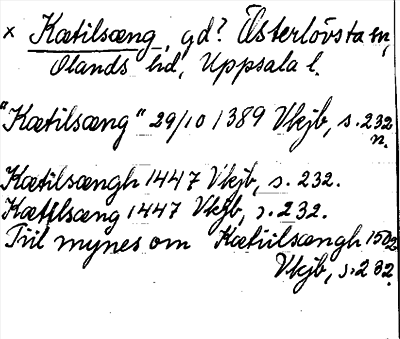 × Kætilsæng, gd? Österlövsta sn,
Olands hd, Uppsala l.
"Kætilsæng" 29/10 1389 Vkjb, s. 232
n.
Kætilsængh 1447 Vkjb, s. 232.
Kætilsæng 1447 Vkjb, s. 232.
Tiil mynes om Kætiilsængh 1502
Vkjb, s. 232.